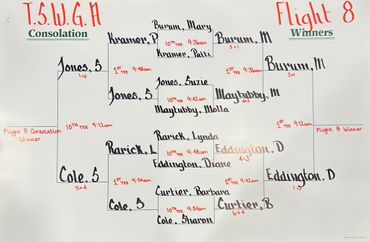 T.S.W.G.A
Flight 8
Consolation
Winners
Burum, Mary
Kramer, P
10TH TEE 9:36am
Burum, M
Kramer, Patti
3+1
Jones, S
1st TEE 9:48am
1st TEE 9:36am
Burum, M
1up
2+1
Jones, Suzie
Jones, S
10TH TEE 9:42am
Maytubby, M
Maytubby, Molla
4+3
Flight 8 Consolation
Winner
10TH TEE 9:12am
1st TEE 9:12am
Flight 8 Winner
Rarick, Lynda
Rarick, L
10TH TEE 9:48am
Eddington, D
Eddington, Diane
4+3
Cole, S
1st TEE 9:54am
1st TEE 9:42am
Eddington, D
5+4
Curtier, Barbara
Cole, S
10TH TEE 9:54am
Curtier, B
Cole, Sharon